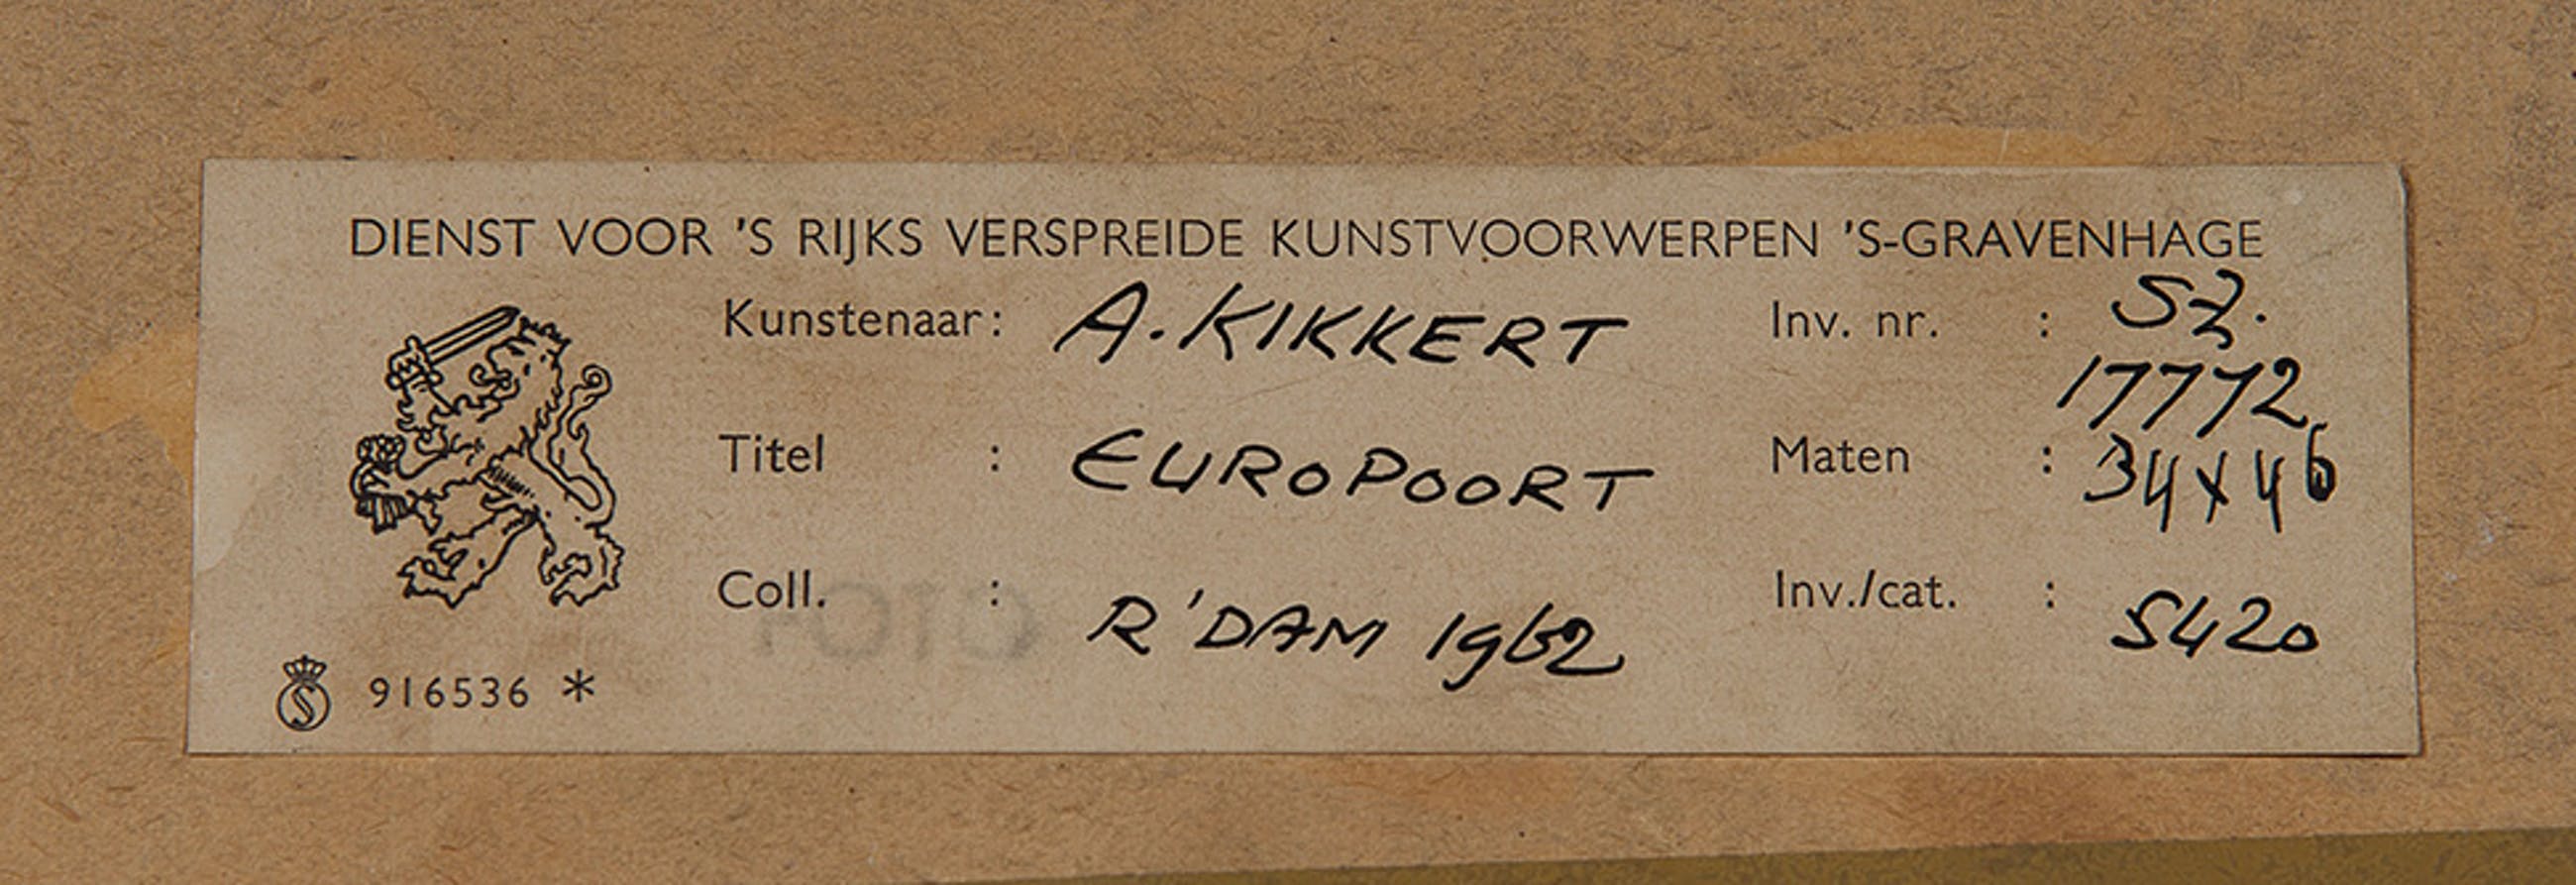 DIENST VOOR 'S RIJKS VERSPREIDE KUNSTVOORWERPEN 'S-GRAVENHAGE
Kunstenaar: A. KIKKERT Inv. nr. : SZ.
17772
Titel : EUROPOORT Maten : 34x46
Coll. : R'DAM 1962 Inv./cat. : S420
FOTO
S 916536 *